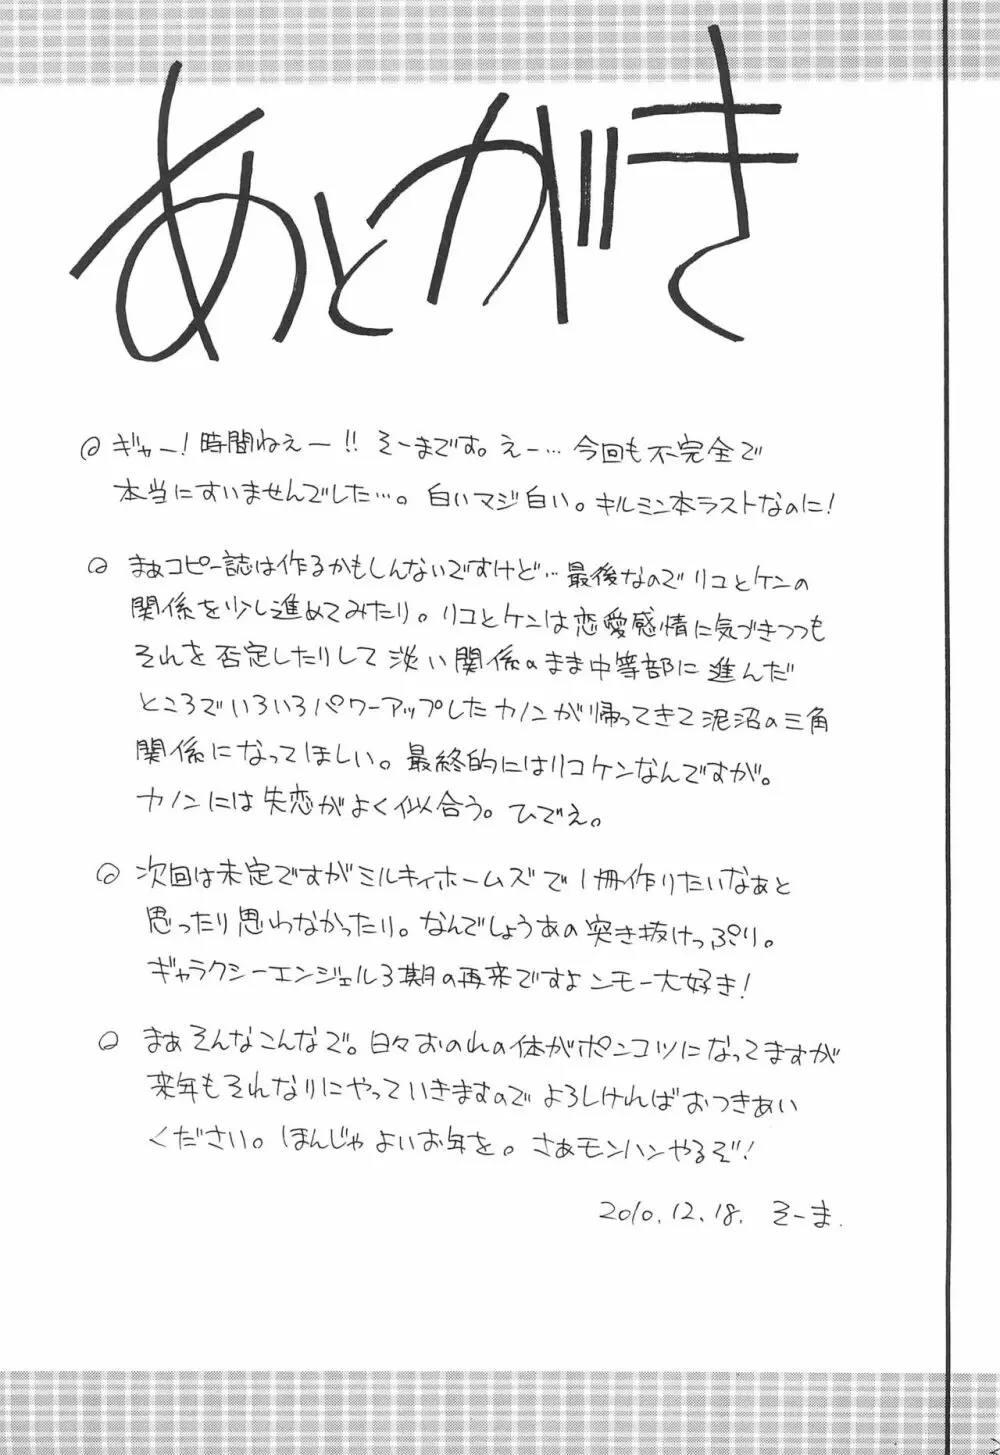 あとがき
ギャー！時間ねぇー!! そーまです。えー…今回も不完全で
本当にすいませんでした…。白いマジ白い。キルミン本ラストなのに！
まぁコピー誌は作るかもしんないですけど…最後なのでリコとケンの
関係を少し進めてみたり。リコとケンは恋愛感情に気づきつつも
それを否定したりして淡い関係のまま中等部に進んだ
ところでいろいろパワーアップしたカノンが帰ってきて泥沼の三角
関係になってほしい。最終的にはリコケンなんですが。
カノンには失恋がよく似合う。ひでぇ。
次回は未定ですがミルキィホームズで1冊作りたいなぁと
思ったり思わなかったり。なんでしょうあの突き抜けっぷり。
ギャラクシーエンジェル3期の再来ですよンモー大好き！
まぁそんなこんなで。日々おのれの体がポンコツになってますが
来年もそれなりにやっていきますのでよろしければおつきあい
ください。ほんじゃよいお年を。さぁモンハンやるぞ！
2010.12.18. そーま.